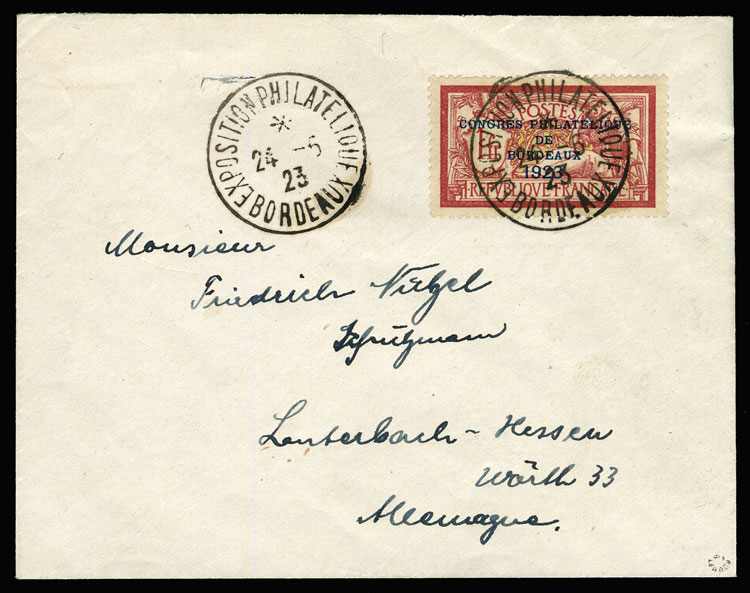 EXPOSITION PHILATELIQUE
*
24 -6
23
BORDEAUX
EXPOSITION PHILATELIQUE
POSTES
CONGRES PHILATELIQUE
DE
BORDEAUX
1923
1F
REPUBLIQUE FRANÇAISE
24 -6
23
BORDEAUX
Monsieur
Friedrich Nützel
Schutzmann
Lauterbach-Hessen
Wörth 33
Allemagne.